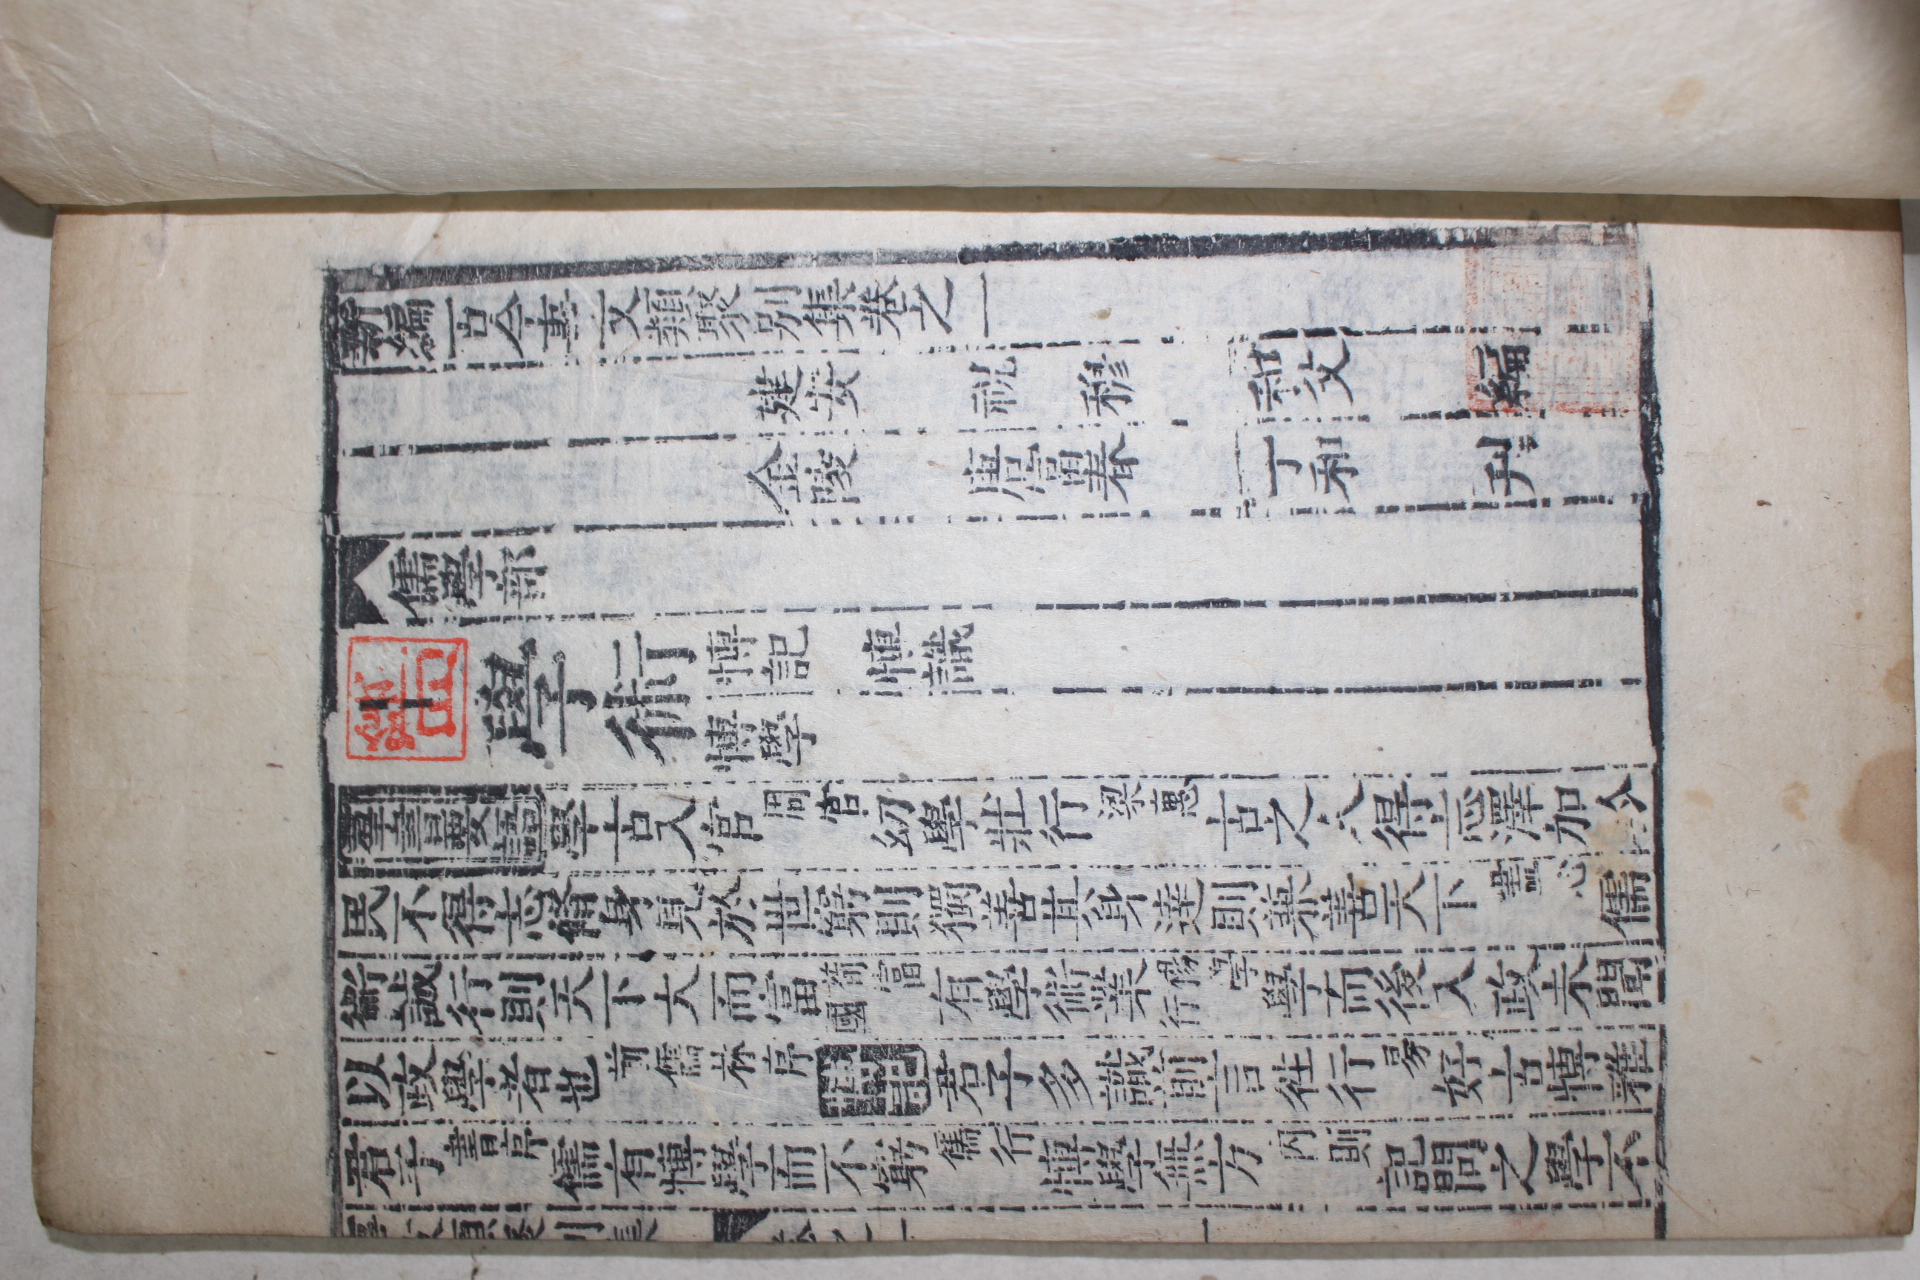 新編古今事文類聚別集卷之一
建安 祝 穆 和父 編
金陵 唐富春 丁和 刋
儒學部
學術 愽記 愽識 愽學
羣書要語 學古入官 周官 幼學壯行 梁惠 古之人得志澤加於
民不得志脩身見於世窮則獨善其身達則兼善天下 盡心 儒
術誠行則天下大而富 荀富國 有學術業 楊學行 學而後入政未聞
以政學者也 前儒林序 君子多識前言徃行 易 好古愽雅
君子 書序 儒有愽學而不窮 儒行 愽學無方 內則 記問之學不
事文類聚別集 卷之一 一